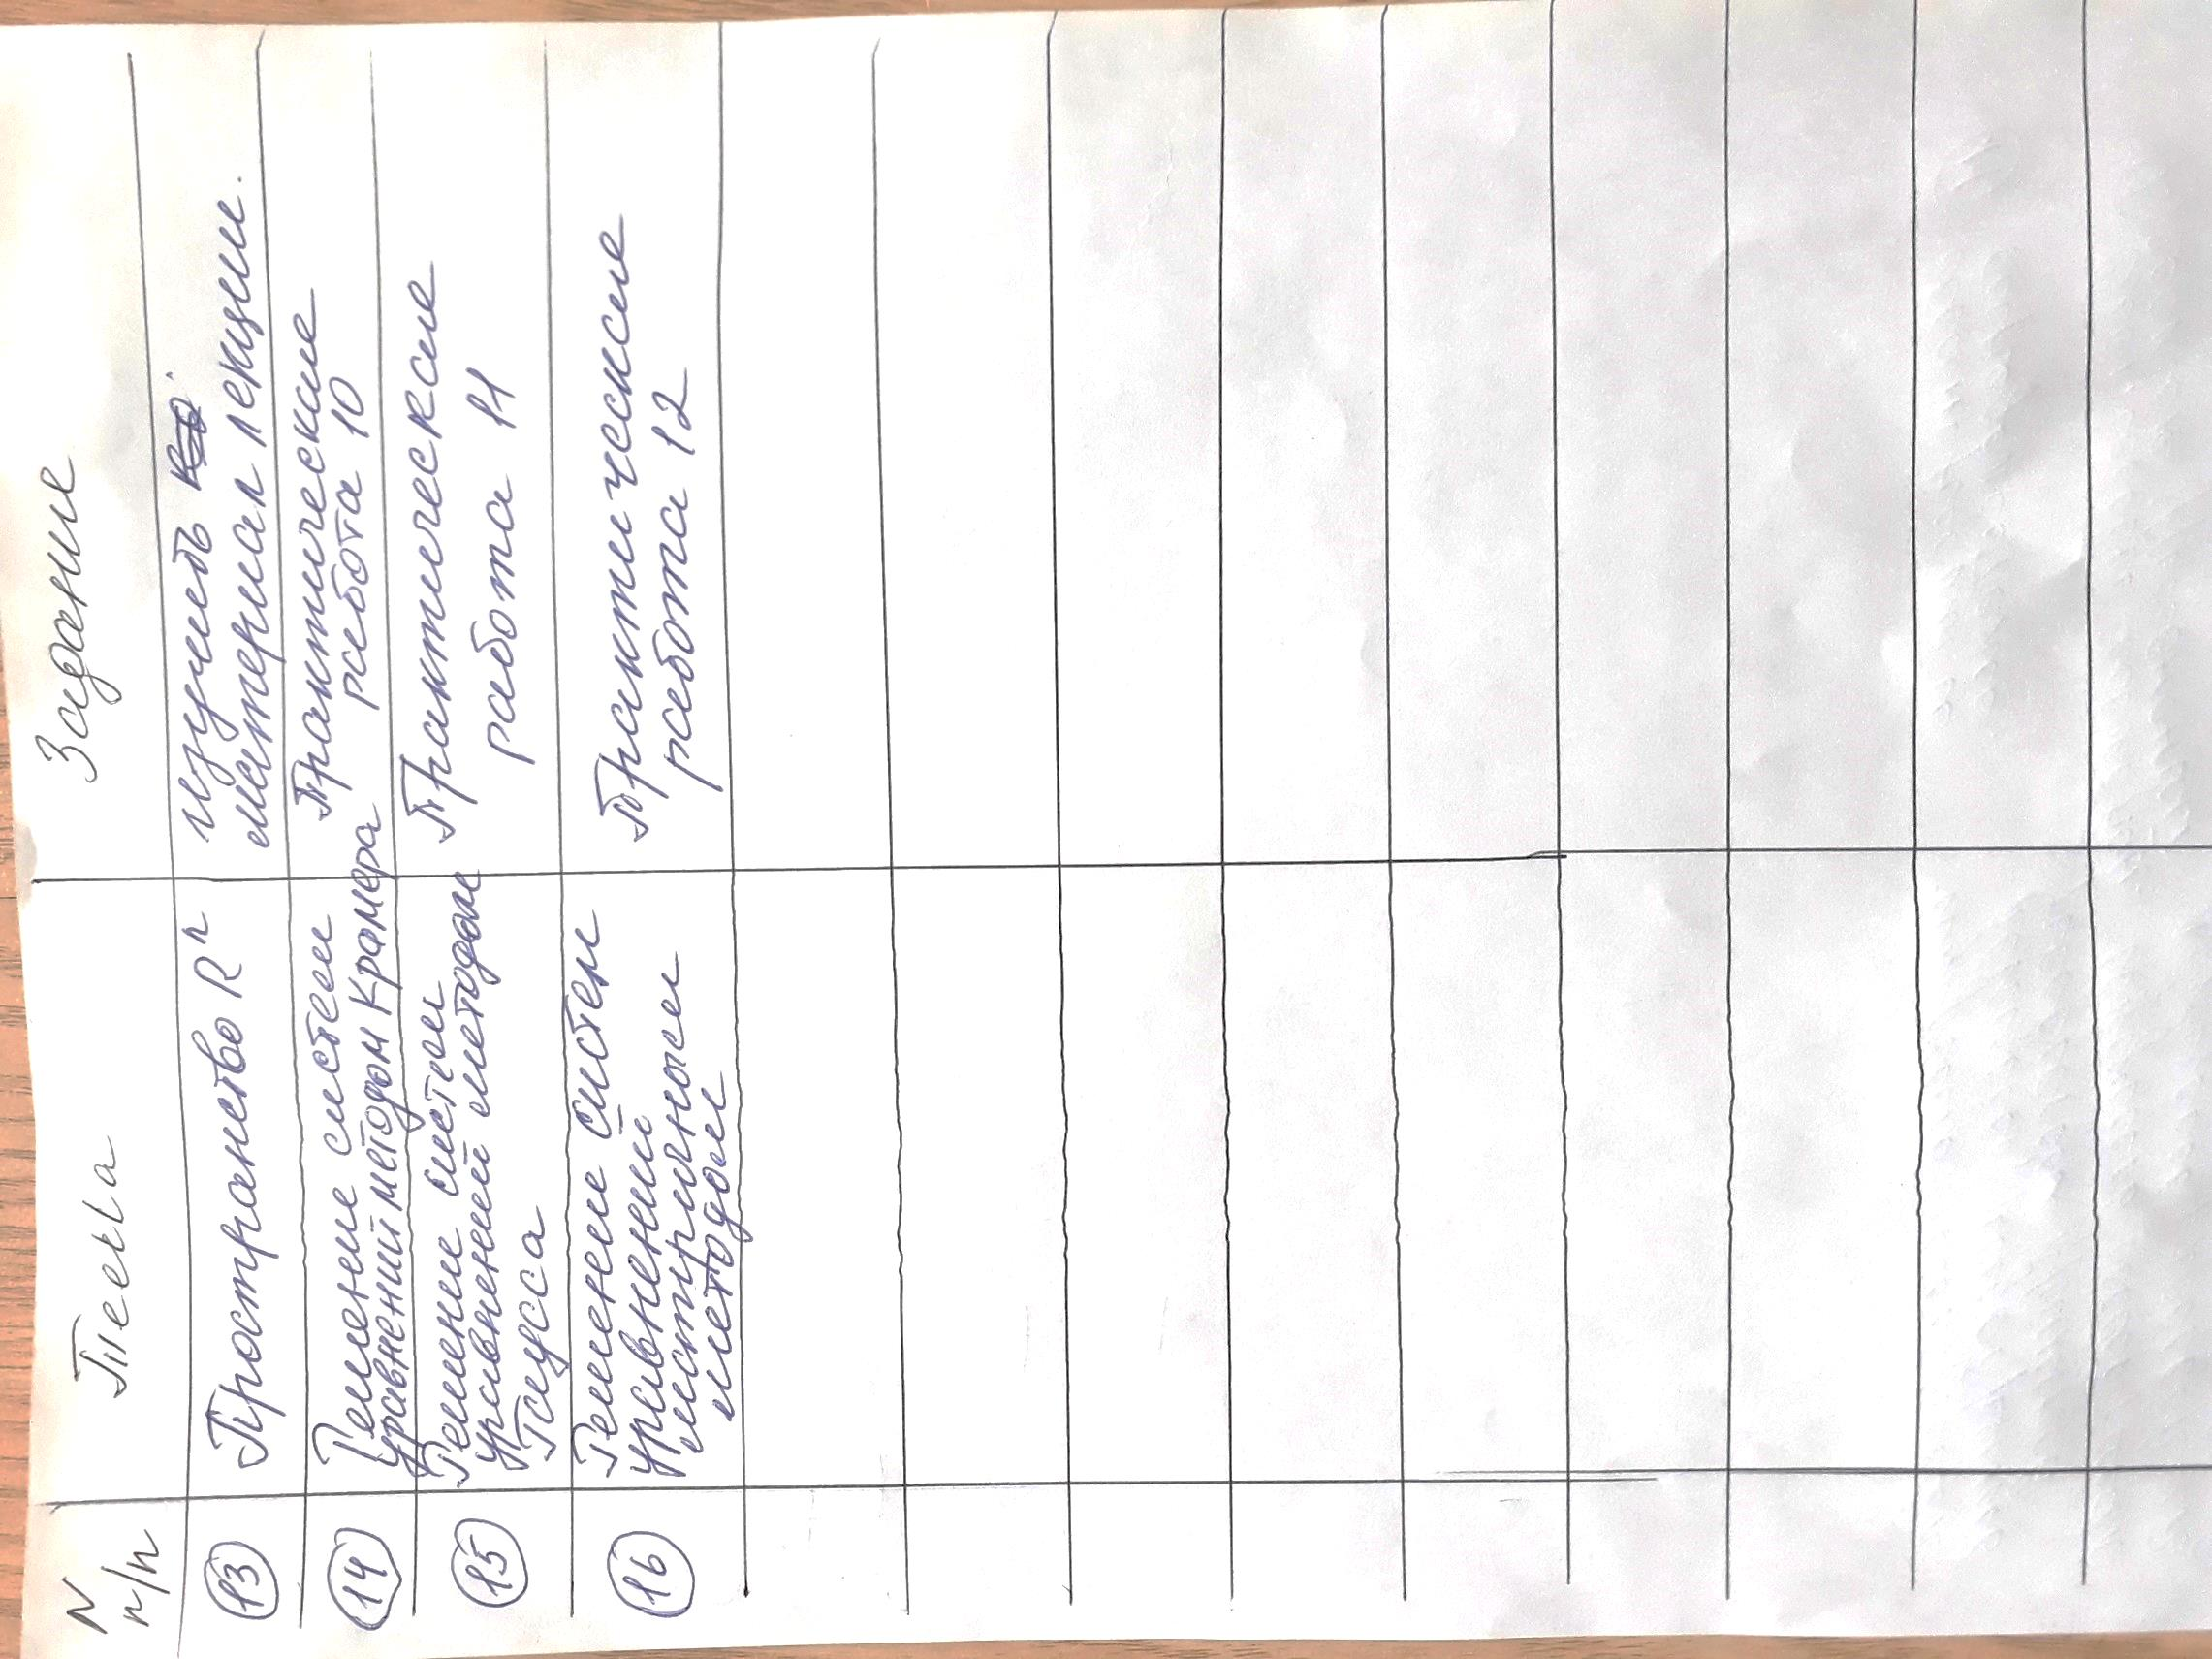 N
п/п
Тема
Задание
13
Пространство Rⁿ
изучить
материал лекции.
14
Решение систем
уравнений методом Крамера
Практические
работа 10
15
Решение систем
уравнений методом
Гаусса
Практические
работа 11
16
Решение систем
уравнений
матричном
методом
Практические
работа 12